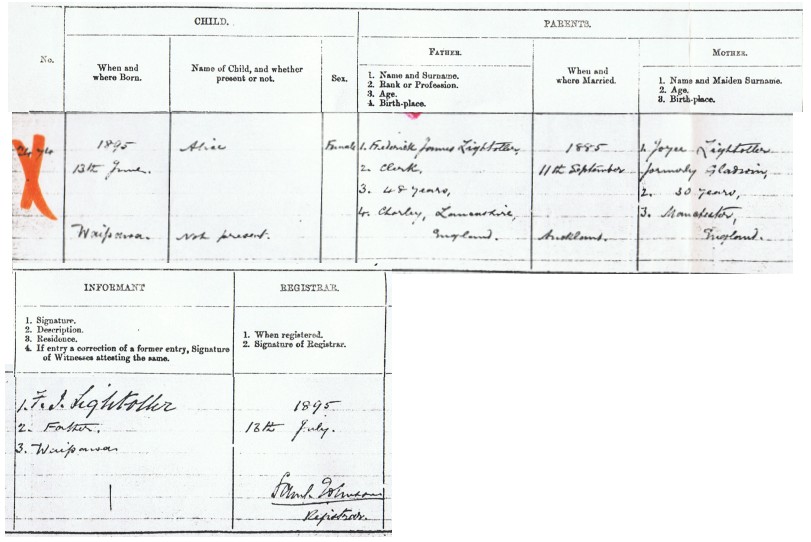 CHILD.
PARENTS.
No.
When and
where Born.
Name of Child, and whether
present or not.
Sex.
FATHER.
1. Name and Surname.
2. Rank or Profession.
3. Age.
4. Birth-place.
When and
where Married.
MOTHER.
1. Name and Maiden Surname.
2. Age.
3. Birth-place.
1895
13th June.
Waipawa.
Alice
Not present.
Female
1. Frederick James Lightoller,
2. Clerk,
3. 48 years,
4. Chorley, Lancashire,
England.
1885
11th September
Auckland.
1. Joyce Lightoller
formerly Gladwin,
2. 30 years,
3. Manchester,
England.
INFORMANT
REGISTRAR.
1. Signature.
2. Description.
3. Residence.
4. If entry a correction of a former entry, Signature
of Witnesses attesting the same.
1. When registered.
2. Signature of Registrar.
1. F. J. Lightoller
2. Father.
3. Waipawa
1895
13th July.
Saml. Johnson
Registrar.